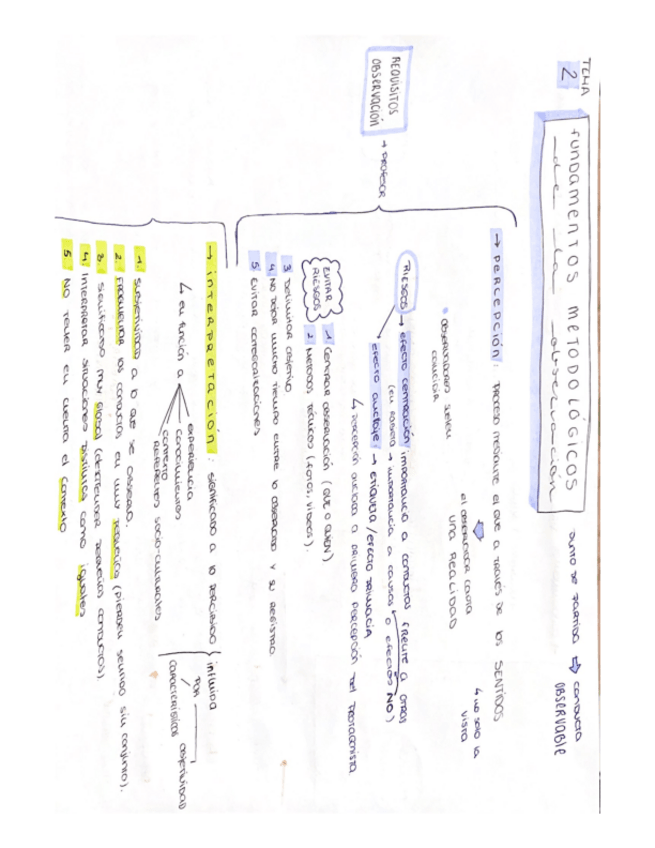 TEMA
2
fundamentos METODOLÓGICOS
de la observación
punto de partida ⇨ conducta
OBSERVABLE
REQUISITOS
OBSERVACIÓN
→ PROFESOR
→ PERCEPCIÓN: PROCESO MEDIANTE EL QUE A TRAVÉS DE LOS SENTIDOS
↳ no solo la
vista
el observador capta
UNA REALIDAD
• OBSERVADORES SUELEN
COINCIDIR
RIESGOS → efecto centración importancia a conductas frente a otras
(en sobre → importancia a causas o efectos NO)
efecto anclaje → etiqueta / efecto primacía
↳ percepción anclada a primera percepción del protagonista
EVITAR
RIESGOS
1 Centrar observación (QUÉ O QUIÉN)
2 Métodos técnicos (fotos, vídeos).
3 Delimitar objetivo
4 NO DEJAR MUCHO TIEMPO ENTRE lo OBSERVADO Y SU REGISTRO
5 EVITAR CATEGORIZACIONES
→ INTERPRETACIÓN: significado a lo percibido
influida
POR
características objetividad
↳ en función a
experiencia
conocimientos
contexto
REFERENTES SOCIO-CULTURALES
1. SUBJETIVIDAD a lo que se observa.
2. FRAGMENTAR las conductas en muy pequeñas (pierden sentido sin conjunto).
3. significado muy global (desatender pequeñas conductas).
4. Interpretar situaciones distintas como iguales
5 NO TENER EN CUENTA el contexto